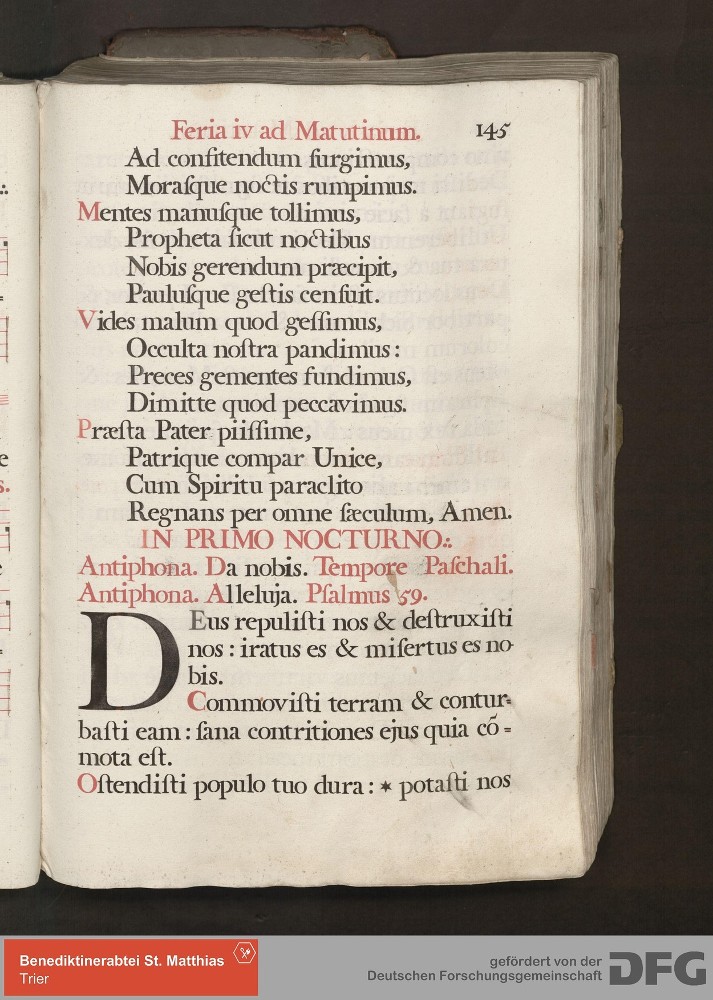 Feria iv ad Matutinum. 145
Ad confitendum ſurgimus,
Moraſque noctis rumpimus.
Mentes manuſque tollimus,
Propheta ſicut noctibus
Nobis gerendum præcipit,
Pauluſque geſtis cenſuit.
Vides malum quod geſſimus,
Occulta noſtra pandimus:
Preces gementes fundimus,
Dimitte quod peccavimus.
Præſta Pater piiſſime,
Patrique compar Unice,
Cum Spiritu paraclito
Regnans per omne ſæculum, Amen.
IN PRIMO NOCTURNO:.
Antiphona. Da nobis. Tempore Paſchali.
Antiphona. Alleluja. Pſalmus 59.
DEus repuliſti nos & deſtruxiſti
nos: iratus es & miſertus es no-
bis.
Commoviſti terram & contur=
baſti eam: ſana contritiones ejus quia cõ=
mota eſt.
Oſtendiſti populo tuo dura: * potaſti nos
Benediktinerabtei St. Matthias
Trier
gefördert von der
Deutschen Forschungsgemeinschaft
DFG